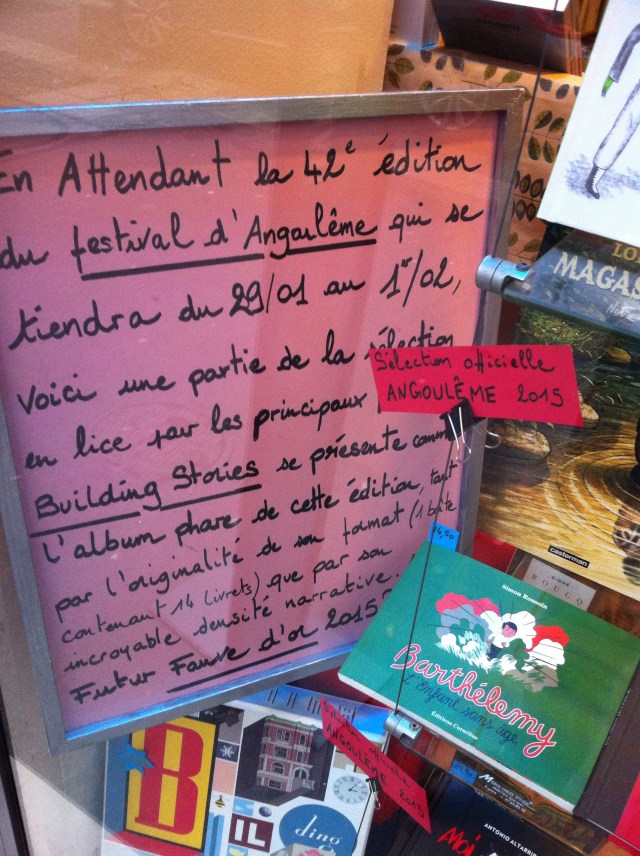 En Attendant la 42e édition
du festival d'Angoulême qui se
tiendra du 29/01 au 1er/02,
Voici une partie de la sélection
en lice pour les principaux
Building Stories se présente comme
l'album phare de cette édition, tant
par l'originalité de son format (1 boîte
contenant 14 livrets) que par son
incroyable densité narrative.
Futur Fauve d'or 2015?
Sélection officielle
ANGOULÊME 2015
MAGAS
casterman
14,50
Simon Roussin
Barthélemy
L'enfant sans âge
Editions Cornélius
Sélection officielle
ANGOULÊME 2015
B
IL
ding
ANTONIO ALTARRI
Moi